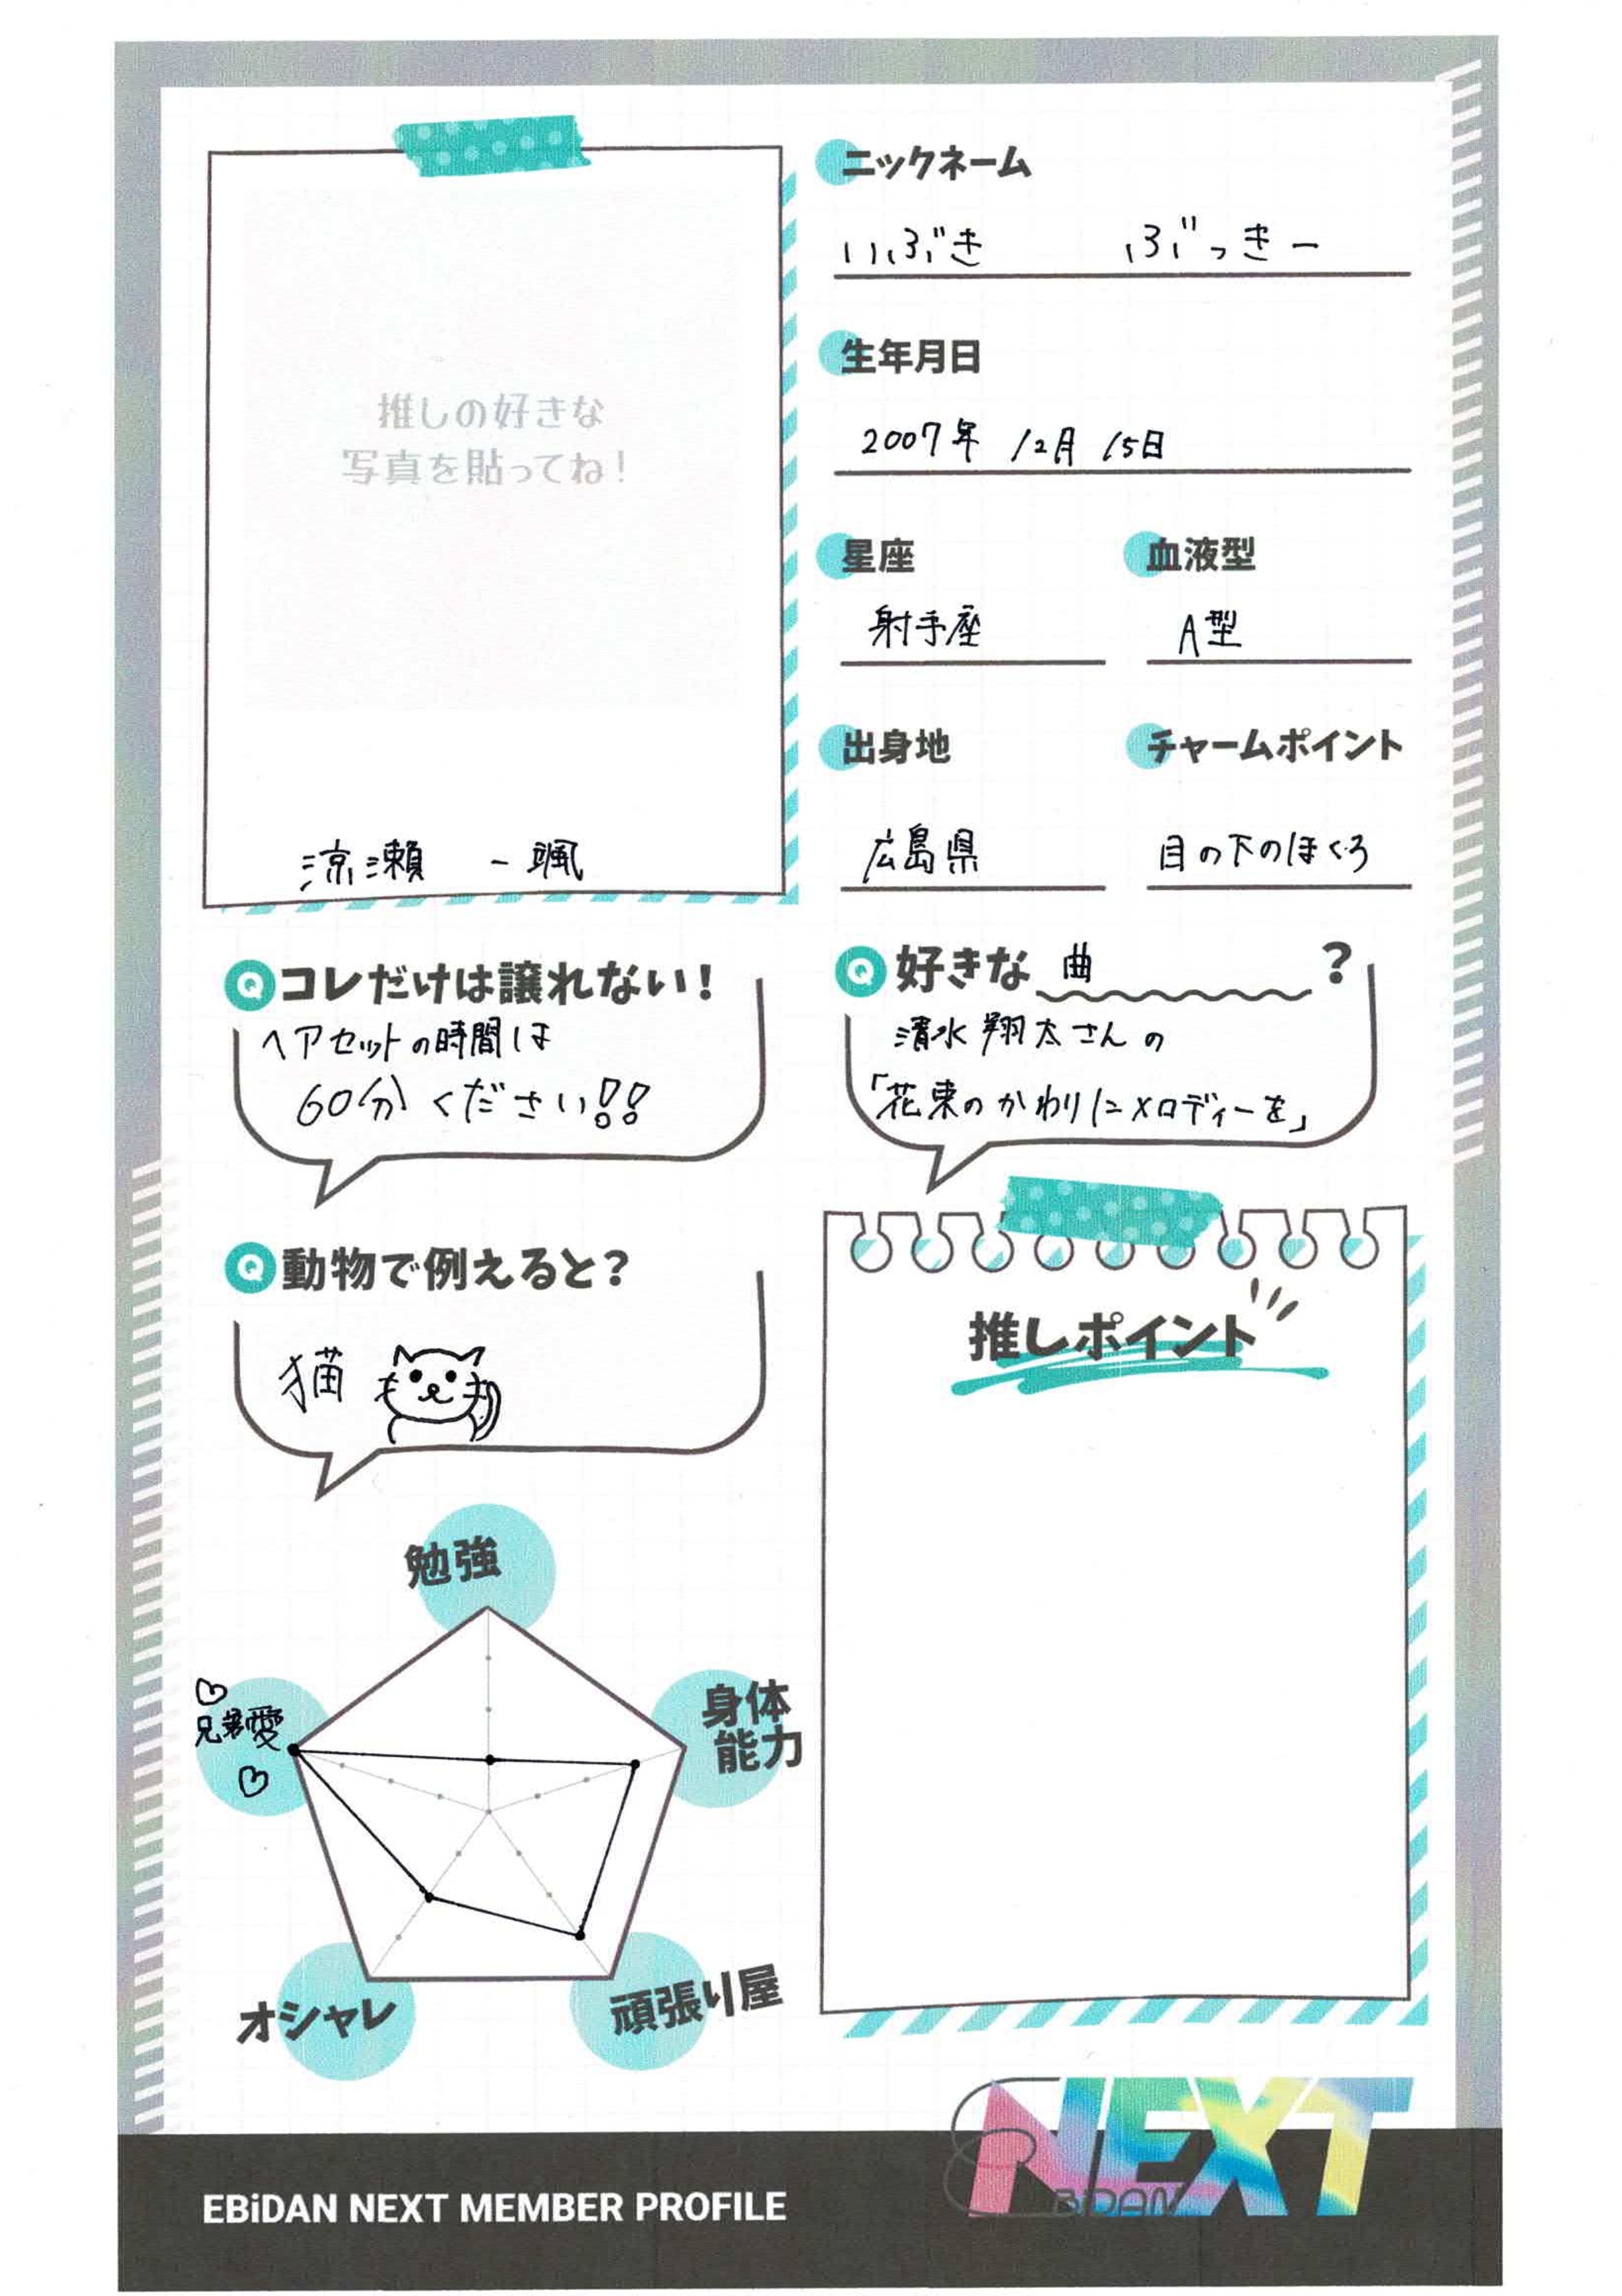 推しの好きな
写真を貼ってね！
涼瀬 一颯
ニックネーム
いぶき ぶっきー
生年月日
2007年 12月 15日
星座
射手座
血液型
A型
出身地
広島県
チャームポイント
目の下のほくろ
Qコレだけは譲れない！
ヘアセットの時間は
60分ください!!
Q好きな 曲 ？
清水翔太さんの
「花束のかわりにメロディーを」
Q動物で例えると？
猫
推しポイント
勉強
身体
能力
頑張り屋
オシャレ
兄弟愛
EBiDAN NEXT MEMBER PROFILE
NEXT
EBiDAN